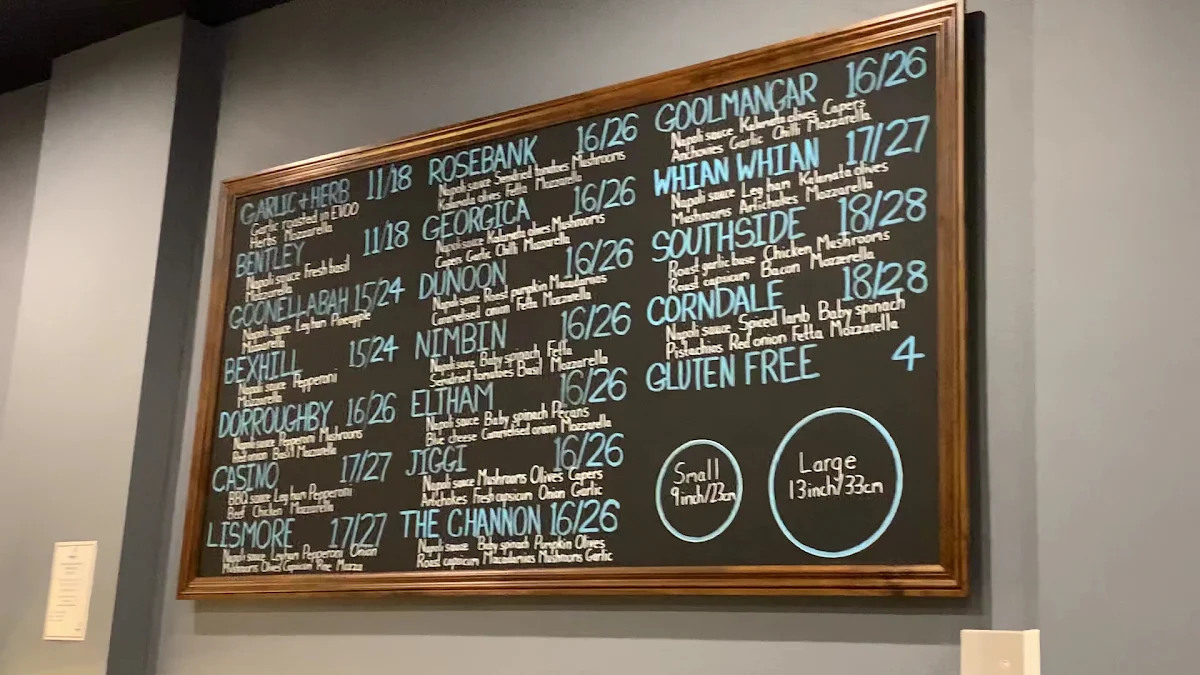 GARLIC+HERB 11/18
Garlic roasted in EVOO
Herbs Mozzarella
BENTLEY 11/18
Napoli sauce Fresh basil
Mozzarella
GOONELLABAH 15/24
Napoli sauce Leg ham Pineapple
Mozzarella
BEXHILL 15/24
Napoli sauce Pepperoni
Mozzarella
DORROUGHBY 16/26
Napoli sauce Pepperoni Mushrooms
Red onion Basil Mozzarella
CASINO 17/27
BBQ sauce Leg ham Pepperoni
Beef Chicken Mozzarella
LISMORE 17/27
Napoli sauce Leg ham Pepperoni Onion
Mushrooms Olives Capsicum Pine Mozza
ROSEBANK 16/26
Napoli sauce Semdried tomatoes Mushrooms
Kalamata olives Fetta Mozzarella
GEORGICA 16/26
Napoli sauce Kalamata olives Mushrooms
Capers Garlic Chilli Mozzarella
DUNOON 16/26
Napoli sauce Roast pumpkin Macadamias
Caramelised onion Fetta Mozzarella
NIMBIN 16/26
Napoli sauce Baby spinach Fetta
Semidried tomatoes Basil Mozzarella
ELTHAM 16/26
Napoli sauce Baby spinach Pecans
Blue cheese Caramelised onion Mozzarella
JIGGI 16/26
Napoli sauce Mushrooms Olives Capers
Artichokes Fresh capsicum Onion Garlic
THE CHANNON 16/26
Napoli sauce Baby spinach Pumpkin Olives
Roast capsicum Macadamias Mushrooms Garlic
GOOLMANGAR 16/26
Napoli sauce Kalamata olives Capers
Anchovies Garlic Chilli Mozzarella
WHIAN WHIAN 17/27
Napoli sauce Leg ham Kalamata olives
Mushrooms Artichokes Mozzarella
SOUTHSIDE 18/28
Roast garlic base Chicken Mushrooms
Roast capsicum Bacon Mozzerella
CORNDALE 18/28
Napoli sauce Spiced lamb Baby spinach
Pistachios Red onion Fetta Mozzarella
GLUTEN FREE 4
Small
9inch/23cm
Large
13inch/33cm